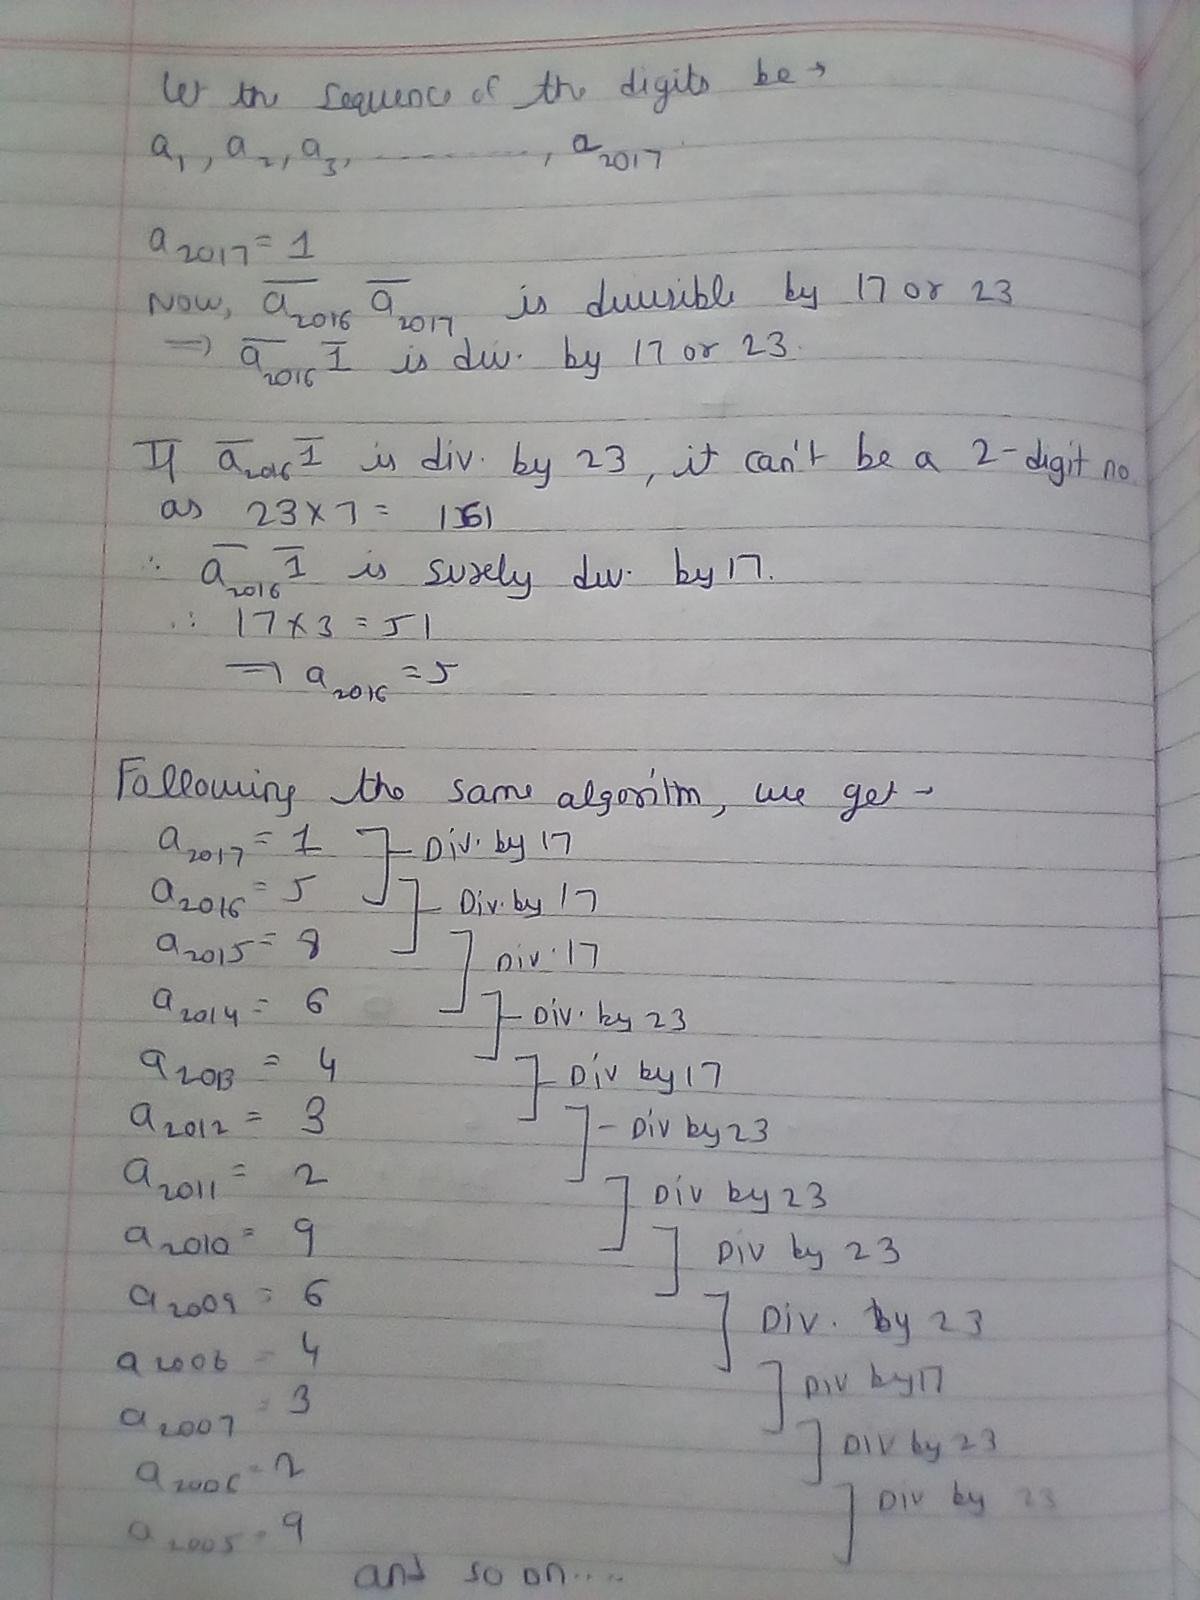 let the sequence of the digits be →
a₁, a₂, a₃, ..........., a₂₀₁₇
a₂₀₁₇ = 1
Now, a̅₂₀₁₆ a̅₂₀₁₇ is divisible by 17 or 23
=> a̅₂₀₁₆ 1̅ is div. by 17 or 23.
If a̅₂₀₁₆ 1̅ is div. by 23, it can't be a 2-digit no.
as 23 x 7 = 161
∴ a̅₂₀₁₆ 1̅ is surely div. by 17.
∴ 17 x 3 = 51
=> a₂₀₁₆ = 5
Following the same algoritm, we get →
a₂₀₁₇ = 1 ] Div. by 17
a₂₀₁₆ = 5 ] Div. by 17
a₂₀₁₅ = 8 ] Div. 17
a₂₀₁₄ = 6 ] Div. by 23
a₂₀₁₃ = 4 ] Div by 17
a₂₀₁₂ = 3 ] - Div by 23
a₂₀₁₁ = 2 ] Div by 23
a₂₀₁₀ = 9 ] Div by 23
a₂₀₀₉ = 6 ] Div. by 23
a₂₀₀₈ = 4 ] Div by 17
a₂₀₀₇ = 3 ] Div by 23
a₂₀₀₆ = 2 ] Div by 23
a₂₀₀₅ = 9
and so on....